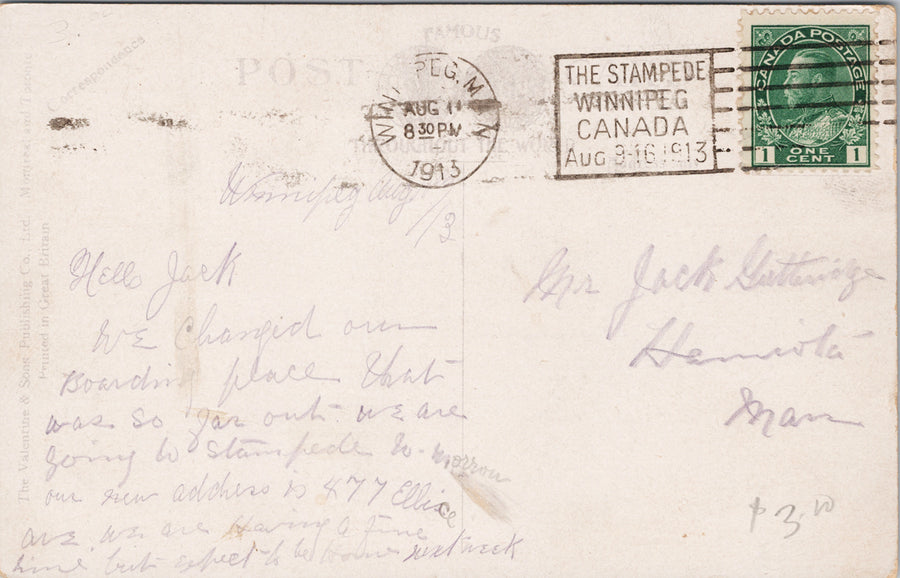 FAMOUS
POST
THROUGHOUT THE WORLD
Correspondence
The Valentine & Sons Publishing Co., Ltd. Montreal and Toronto
Printed in Great Britain
WINNIPEG, MAN
AUG 11
8 30 PM
1913
THE STAMPEDE
WINNIPEG
CANADA
Aug 9-16 1913
CANADA POSTAGE
1 ONE CENT 1
Winnipeg Aug /13
Hello Jack
We Changid our
Boardin place that
was so far out we are
going to Stampede to-morrow
our new address is 477 Ellice
ave we are Having a fine
time but expect to be home next week
Mr Jack Guttridge
Hamiota
Man
$3.00